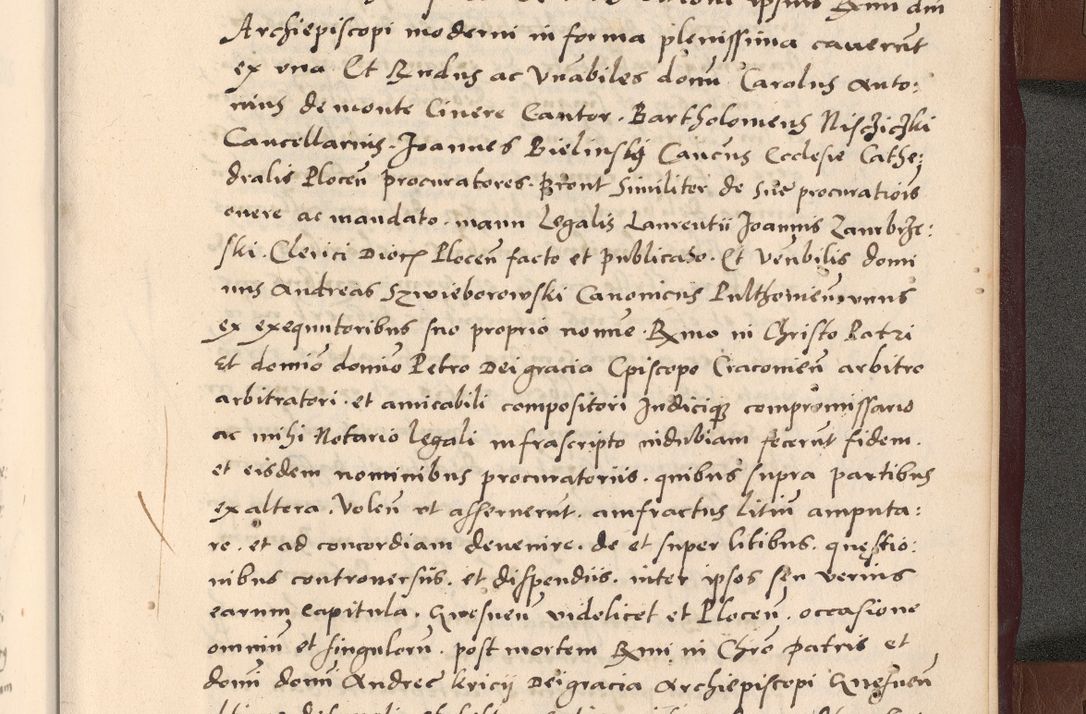 Archiepiscopi moderni in forma plenissima cauerũt
ex vna Et Rndus ac Vnãbiles domĩ Carolus Anto:
nius de monte Cinere Cantor. Bartholomeus Niscziczki
Cancellarius. Joannes Bielinskÿ Canõcus Ecclesie Cathe:
dralis Plocẽn procuratores. Pront similiter de sue procuratiõis
onere ac mandato. manu legalis Laurentii Joannis Zambrze:
ski. Clerici Dioc Plocẽn facto et publicato. Et Venbilis domi
nus Andreas Szwieborowski Canonicus Pulthoniẽn vnus
ex exequutoribus suo proprio noĩne. Rmo in Christo Patri
Et domiõ domiõ Petro Dei gracia Episcopo Cracouieñ arbitro
arbitratori. et amicabili compositori Judiciqȝ compromissario
ac mihi Notario legali infrascripto indubiam fecerũt fidem.
et eisdem nominibus procuratoriis. quibus supra partibus
ex altera. Voleñ vt asseruerũt. amfractus litiũ amputa:
re. et ad concordiam deuenire. de et super litibus. quęstio:
nibus controuersiis. et dispendiis. inter ipsos seu verius
earum capitula. Gnesneñ videlicet et Ploceñ. occasione
omniũ et singulorũ. post mortem Rmi in Chrõ Patris et
domĩ domĩ Andreę kricij Dei gracia Archiepiscopi Gnesneñ